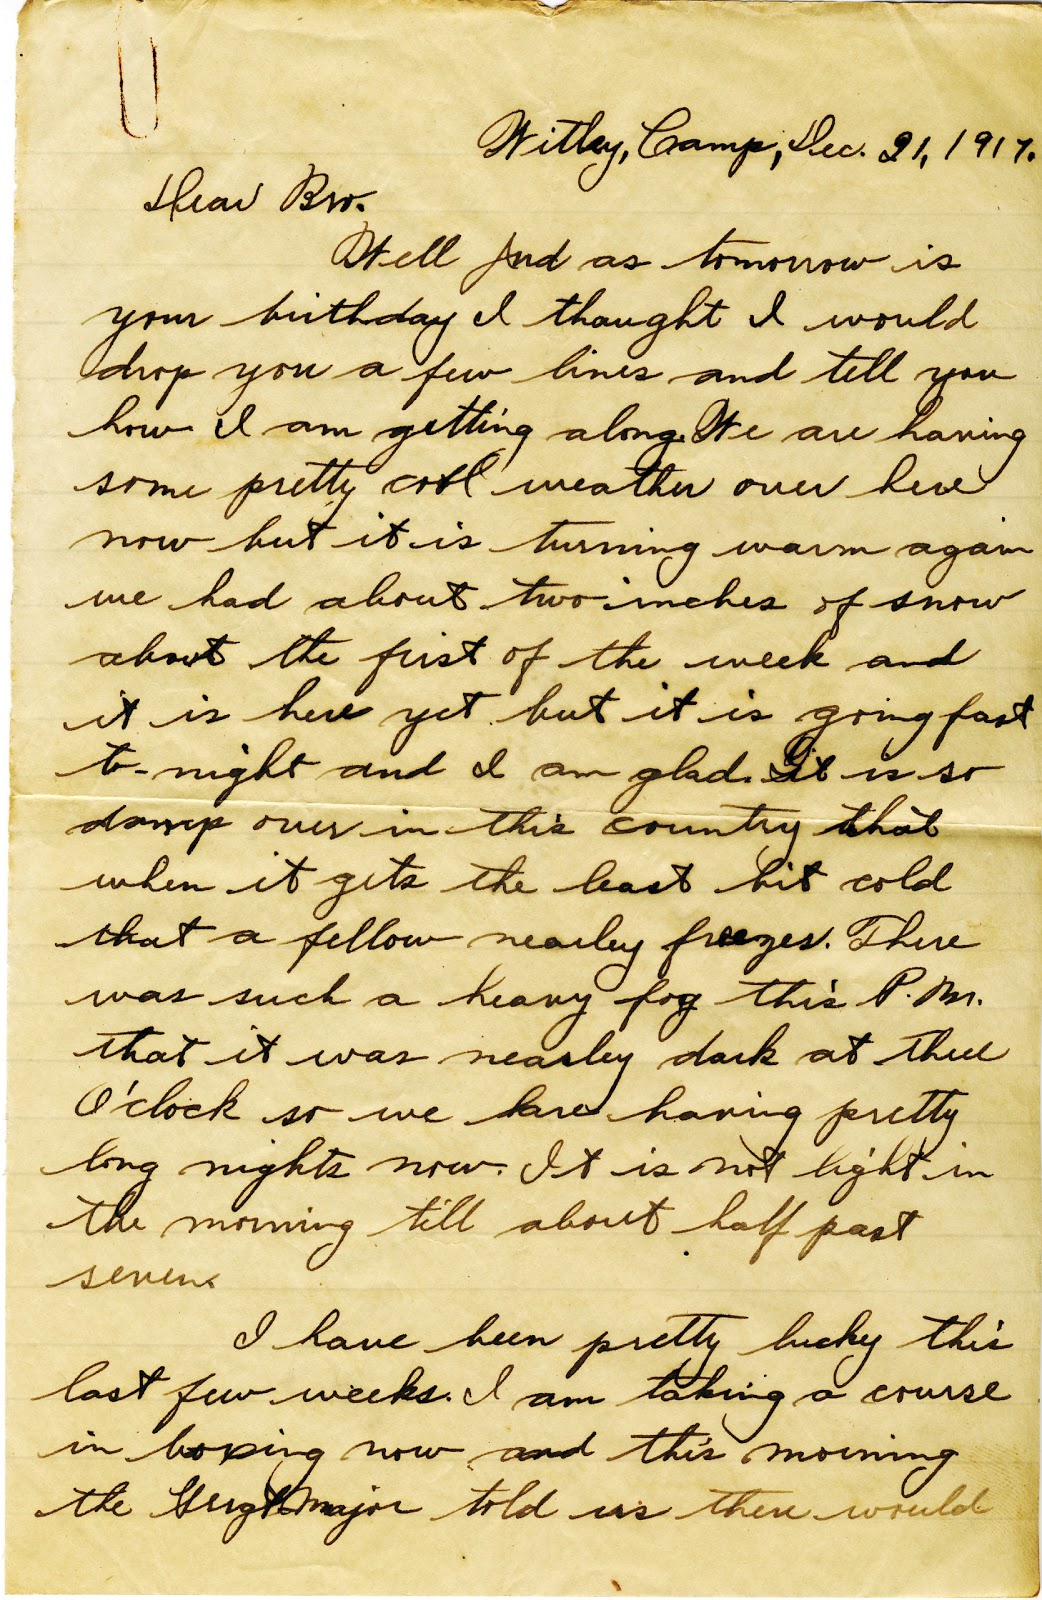 Witley, Camp, Dec. 21, 1917.
Dear Bro.
Well And as tomorrow is
your birthday I thought I would
drop you a few lines and tell you
how I am getting along. We are having
some pretty cool weather over here
now but it is turning warm again
we had about two inches of snow
about the first of the week and
it is here yet but it is going fast
to-night and I am glad. It is so
damp over in this country that
when it gets the least bit cold
that a fellow nearley freezes. There
was such a heavy fog this P.M.
that it was nearley dark at three
O'clock so we are having pretty
long nights now. It is not light in
the morning till about half past
seven.
I have been pretty lucky this
last few weeks. I am taking a course
in boxing now and this morning
the Sergt Major told us there would